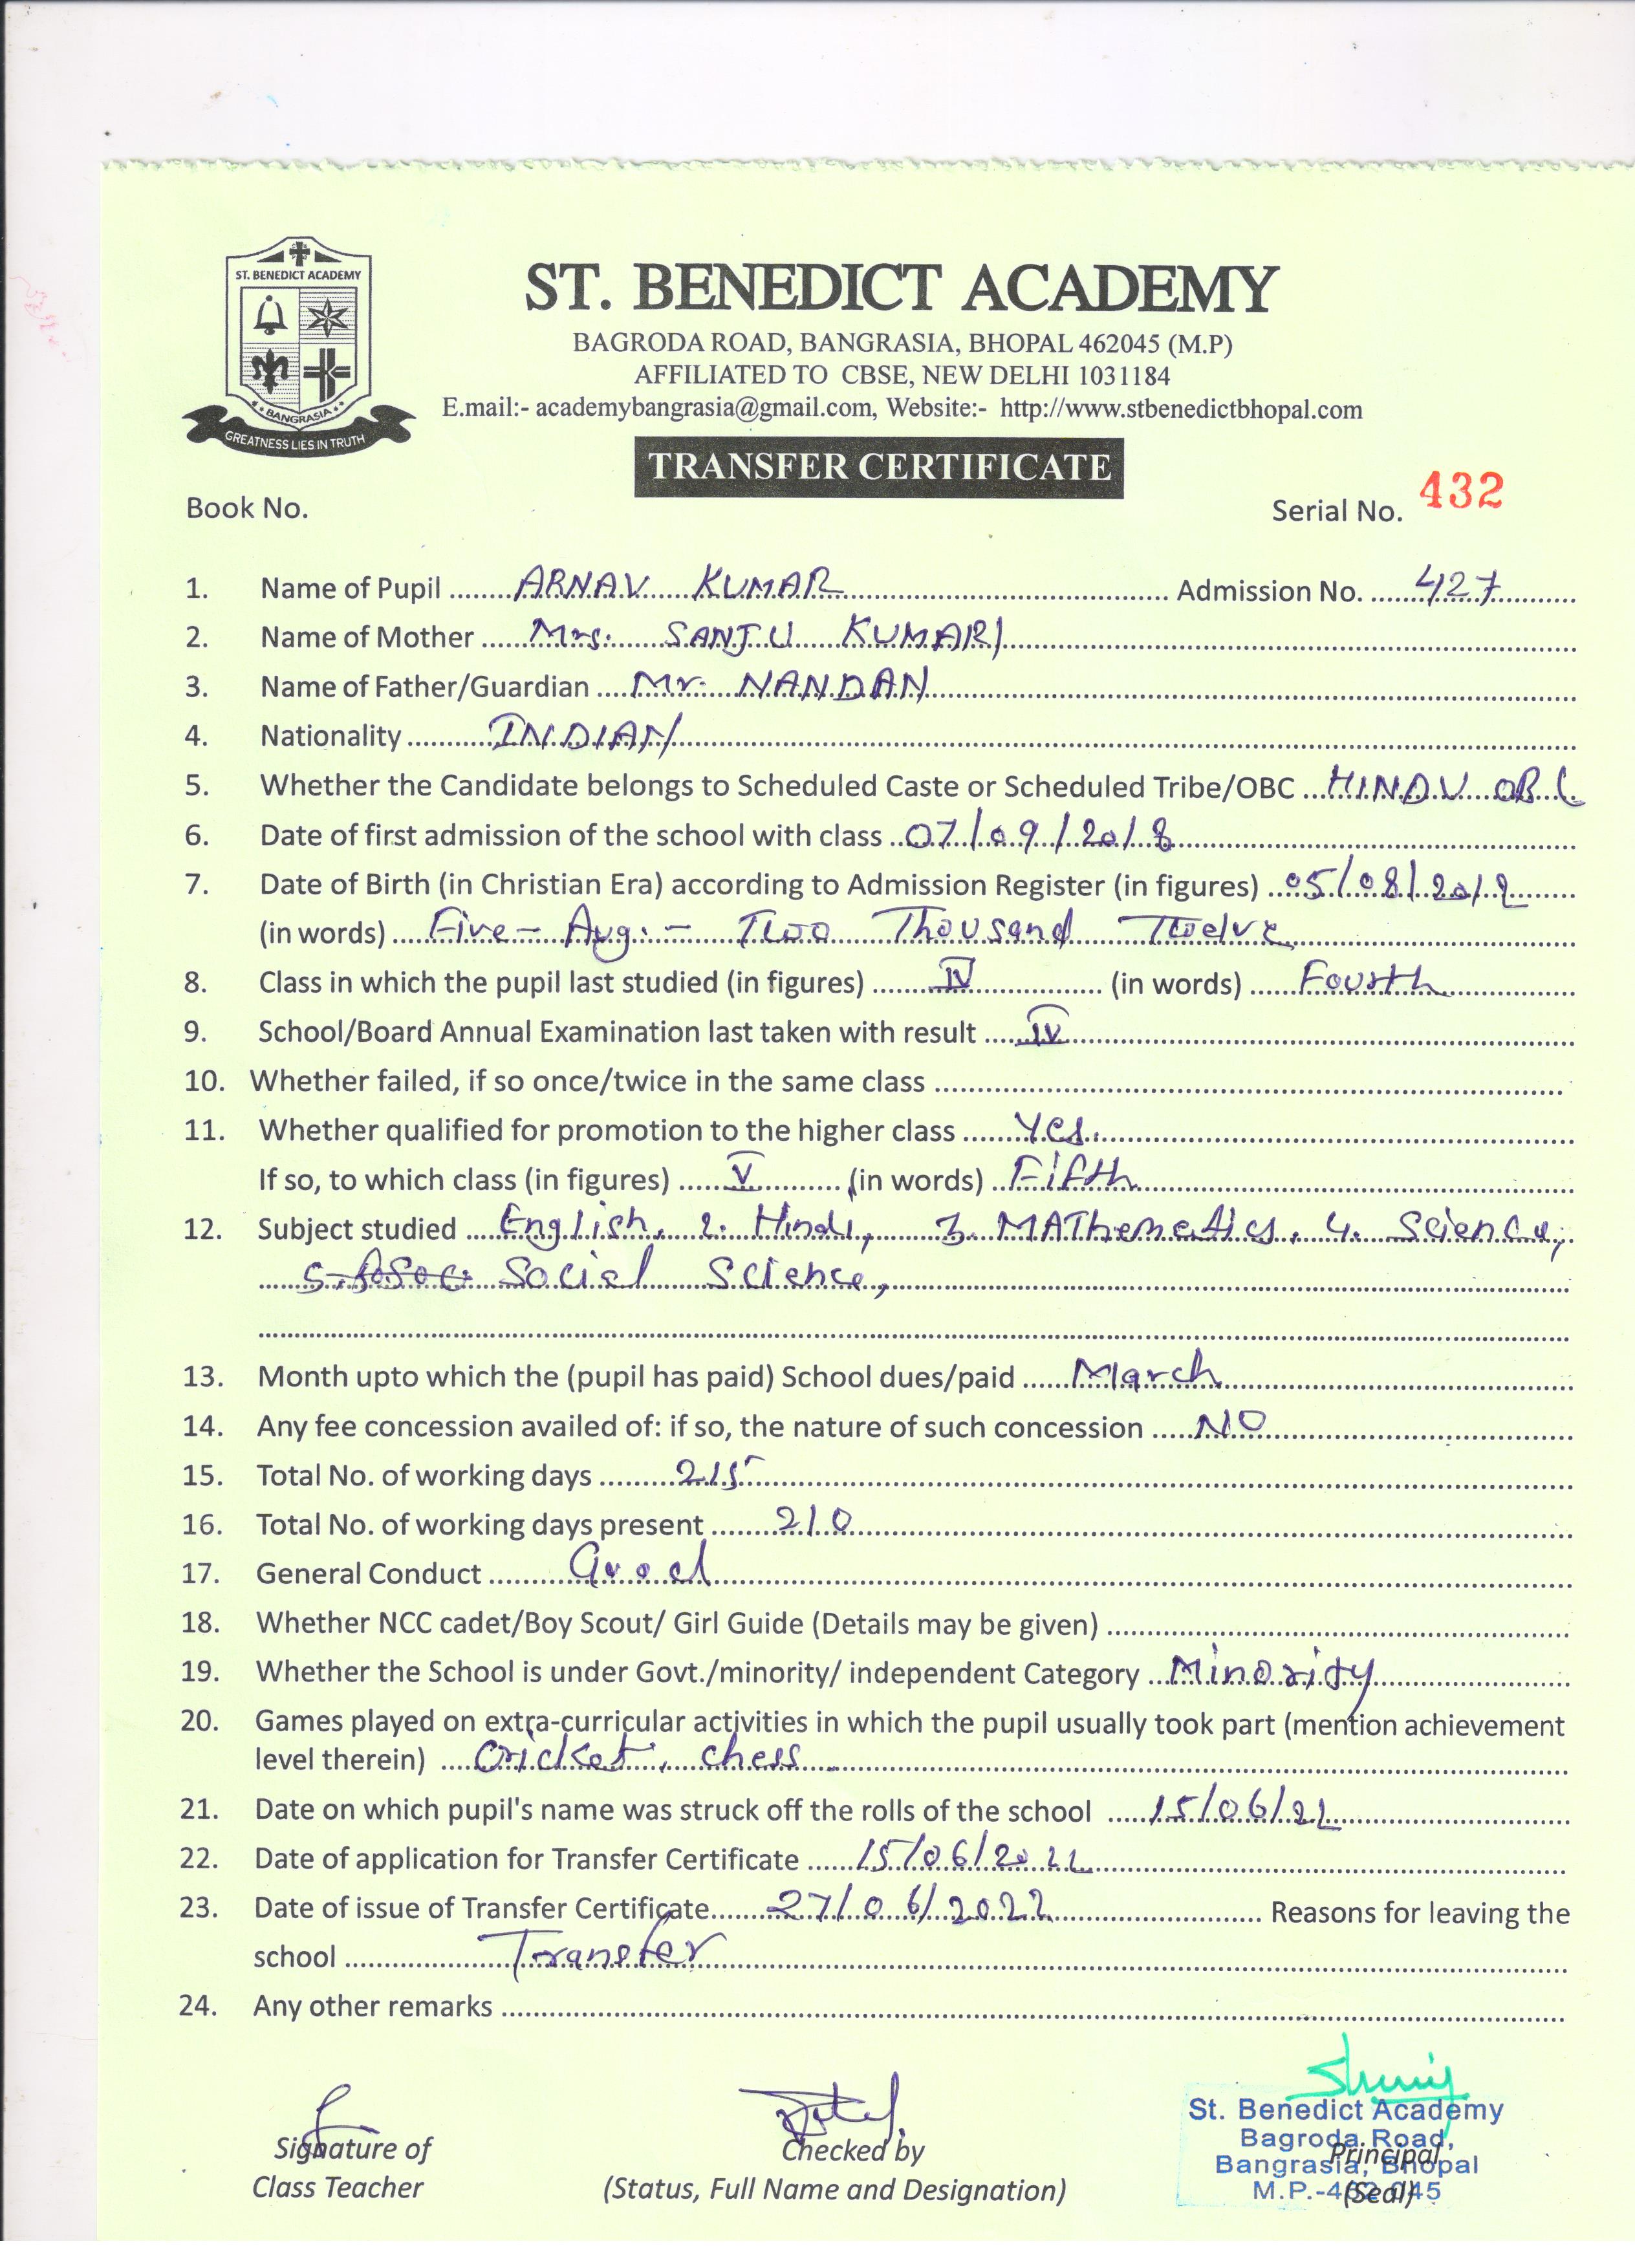 ST. BENEDICT ACADEMY
BANGRASIA
GREATNESS LIES IN TRUTH
ST. BENEDICT ACADEMY
BAGRODA ROAD, BANGRASIA, BHOPAL 462045 (M.P)
AFFILIATED TO CBSE, NEW DELHI 1031184
E.mail:- academybangrasia@gmail.com, Website:- http://www.stbenedictbhopal.com
TRANSFER CERTIFICATE
Book No. Serial No. 432
1. Name of Pupil ARNAV KUMAR Admission No. 427
2. Name of Mother Mrs. SANJU KUMARI
3. Name of Father/Guardian Mr. NANDAN
4. Nationality INDIAN
5. Whether the Candidate belongs to Scheduled Caste or Scheduled Tribe/OBC HINDU OBC
6. Date of first admission of the school with class 07/09/2018
7. Date of Birth (in Christian Era) according to Admission Register (in figures) 05/08/2012
(in words) Five - Aug. - Two Thousand Twelve
8. Class in which the pupil last studied (in figures) IV (in words) Fourth
9. School/Board Annual Examination last taken with result IV
10. Whether failed, if so once/twice in the same class
11. Whether qualified for promotion to the higher class Yes.
If so, to which class (in figures) V (in words) Fifth
12. Subject studied English, 2. Hindi, 3. MAThematics, 4. Science,
5. Social Science,
13. Month upto which the (pupil has paid) School dues/paid March
14. Any fee concession availed of: if so, the nature of such concession NO
15. Total No. of working days 215
16. Total No. of working days present 210
17. General Conduct Good
18. Whether NCC cadet/Boy Scout/ Girl Guide (Details may be given)
19. Whether the School is under Govt./minority/ independent Category Minority
20. Games played on extra-curricular activities in which the pupil usually took part (mention achievement
level therein) Cricket, chess
21. Date on which pupil's name was struck off the rolls of the school 15/06/22
22. Date of application for Transfer Certificate 15/06/2022
23. Date of issue of Transfer Certificate 27/06/2022 Reasons for leaving the
school Transfer
24. Any other remarks
Signature of
Class Teacher
Checked by
(Status, Full Name and Designation)
St. Benedict Academy
Bagroda Road,
Bangrasia, Bhopal
M.P.-462 045
Principal
(Seal)